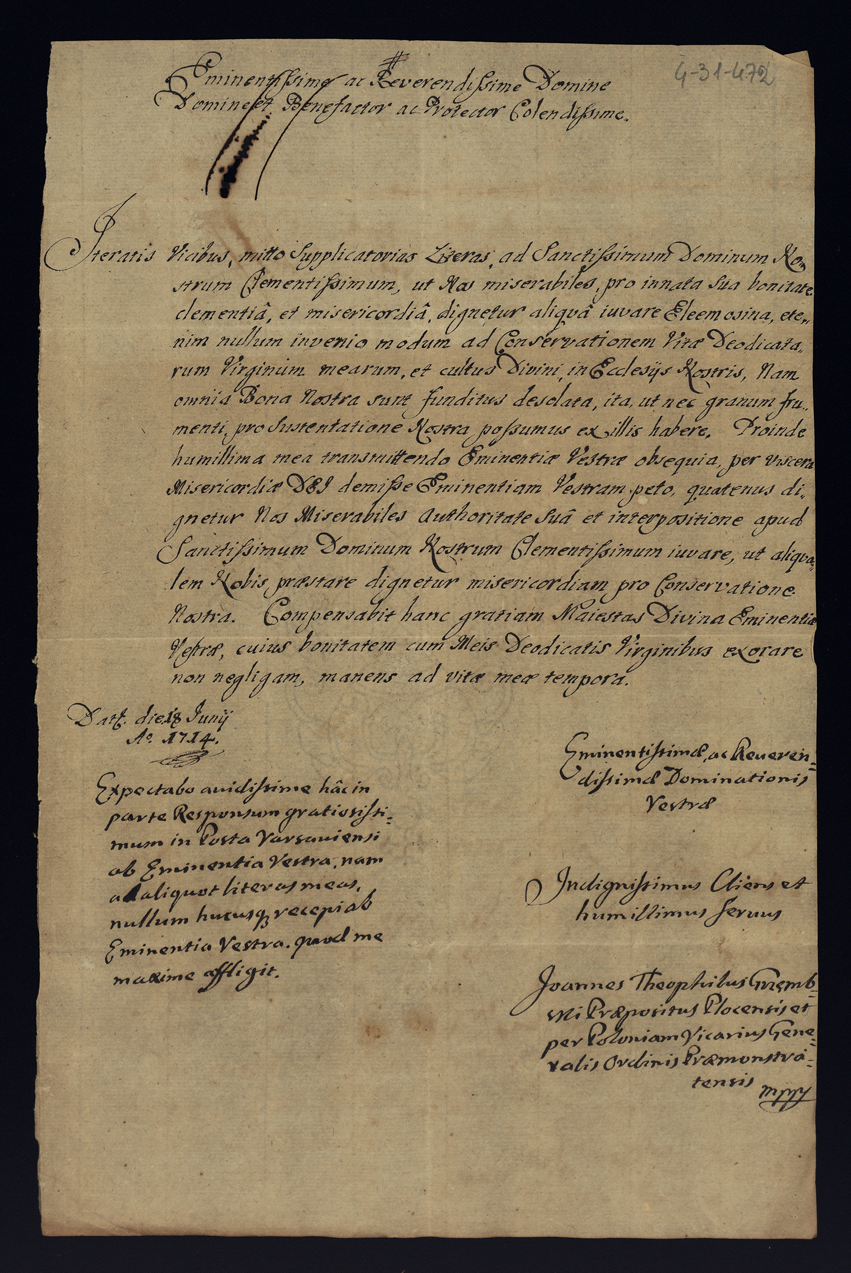 4-31-472
Eminentissime ac Reverendissime Domine
Domine et Benefactor ac Protector Colendissime.
Iteratis Vicibus, mitto Supplicatorias Literas, ad Sanctissimum Dominum No,,
strum Clementissimum, ut Nos miserabiles, pro innata Sua bonitate
clementiâ, et misericordiâ, dignetur aliquâ iuvare Eleemosina, ete,,
nim nullum invenio modum ad Conservationem Vitæ Deodicata,,
rum Virginum mearum, et cultus Divini, in Ecclesijs Nostris, Nam
omnia Bona Nostra sunt funditus desolata, ita, ut nec granum fru,,
menti, pro Sustentatione Nostra possumus ex illis habere. Proinde
humillima mea transmittendo Eminentiæ Vestræ obsequia, per viscera
Misericordiæ DEI demisse Eminentiam Vestram peto, quatenus di,,
gnetur Nos Miserabiles Authoritate Suâ et interpositione apud
Sanctissimum Dominum Nostrum Clementissimum iuvare, ut aliqua,,
lem Nobis præstare dignetur misericordiam pro Conservatione
Nostra. Compensabit hanc gratiam Maiestas Divina Eminentiæ
Vestræ, cuius bonitatem cum Meis Deodicatis Virginibus exorare
non negligam, manens ad vitæ meæ tempora.
Datt. die 18 Junij
Ao. 1714.
Expectabo avidissime hâc in
parte Responsum gratiosissi=
mum in Posta Varsaviensi
ab Eminentia Vestra, nam
ad aliquot literas meas,
nullum hucusq3 recepi ab
Eminentia Vestra. quod me
maxime affligit.
Eminentissimæ, ac Reveren=
dissimæ Dominationis
Vestræ
Indignissimus Cliens et
humillimus servus
Joannes Theophilus
Præpositus Plocensis et
per Poloniam Vicarius Gene=
ralis Ordinis Præmonstra=
tensis mppp